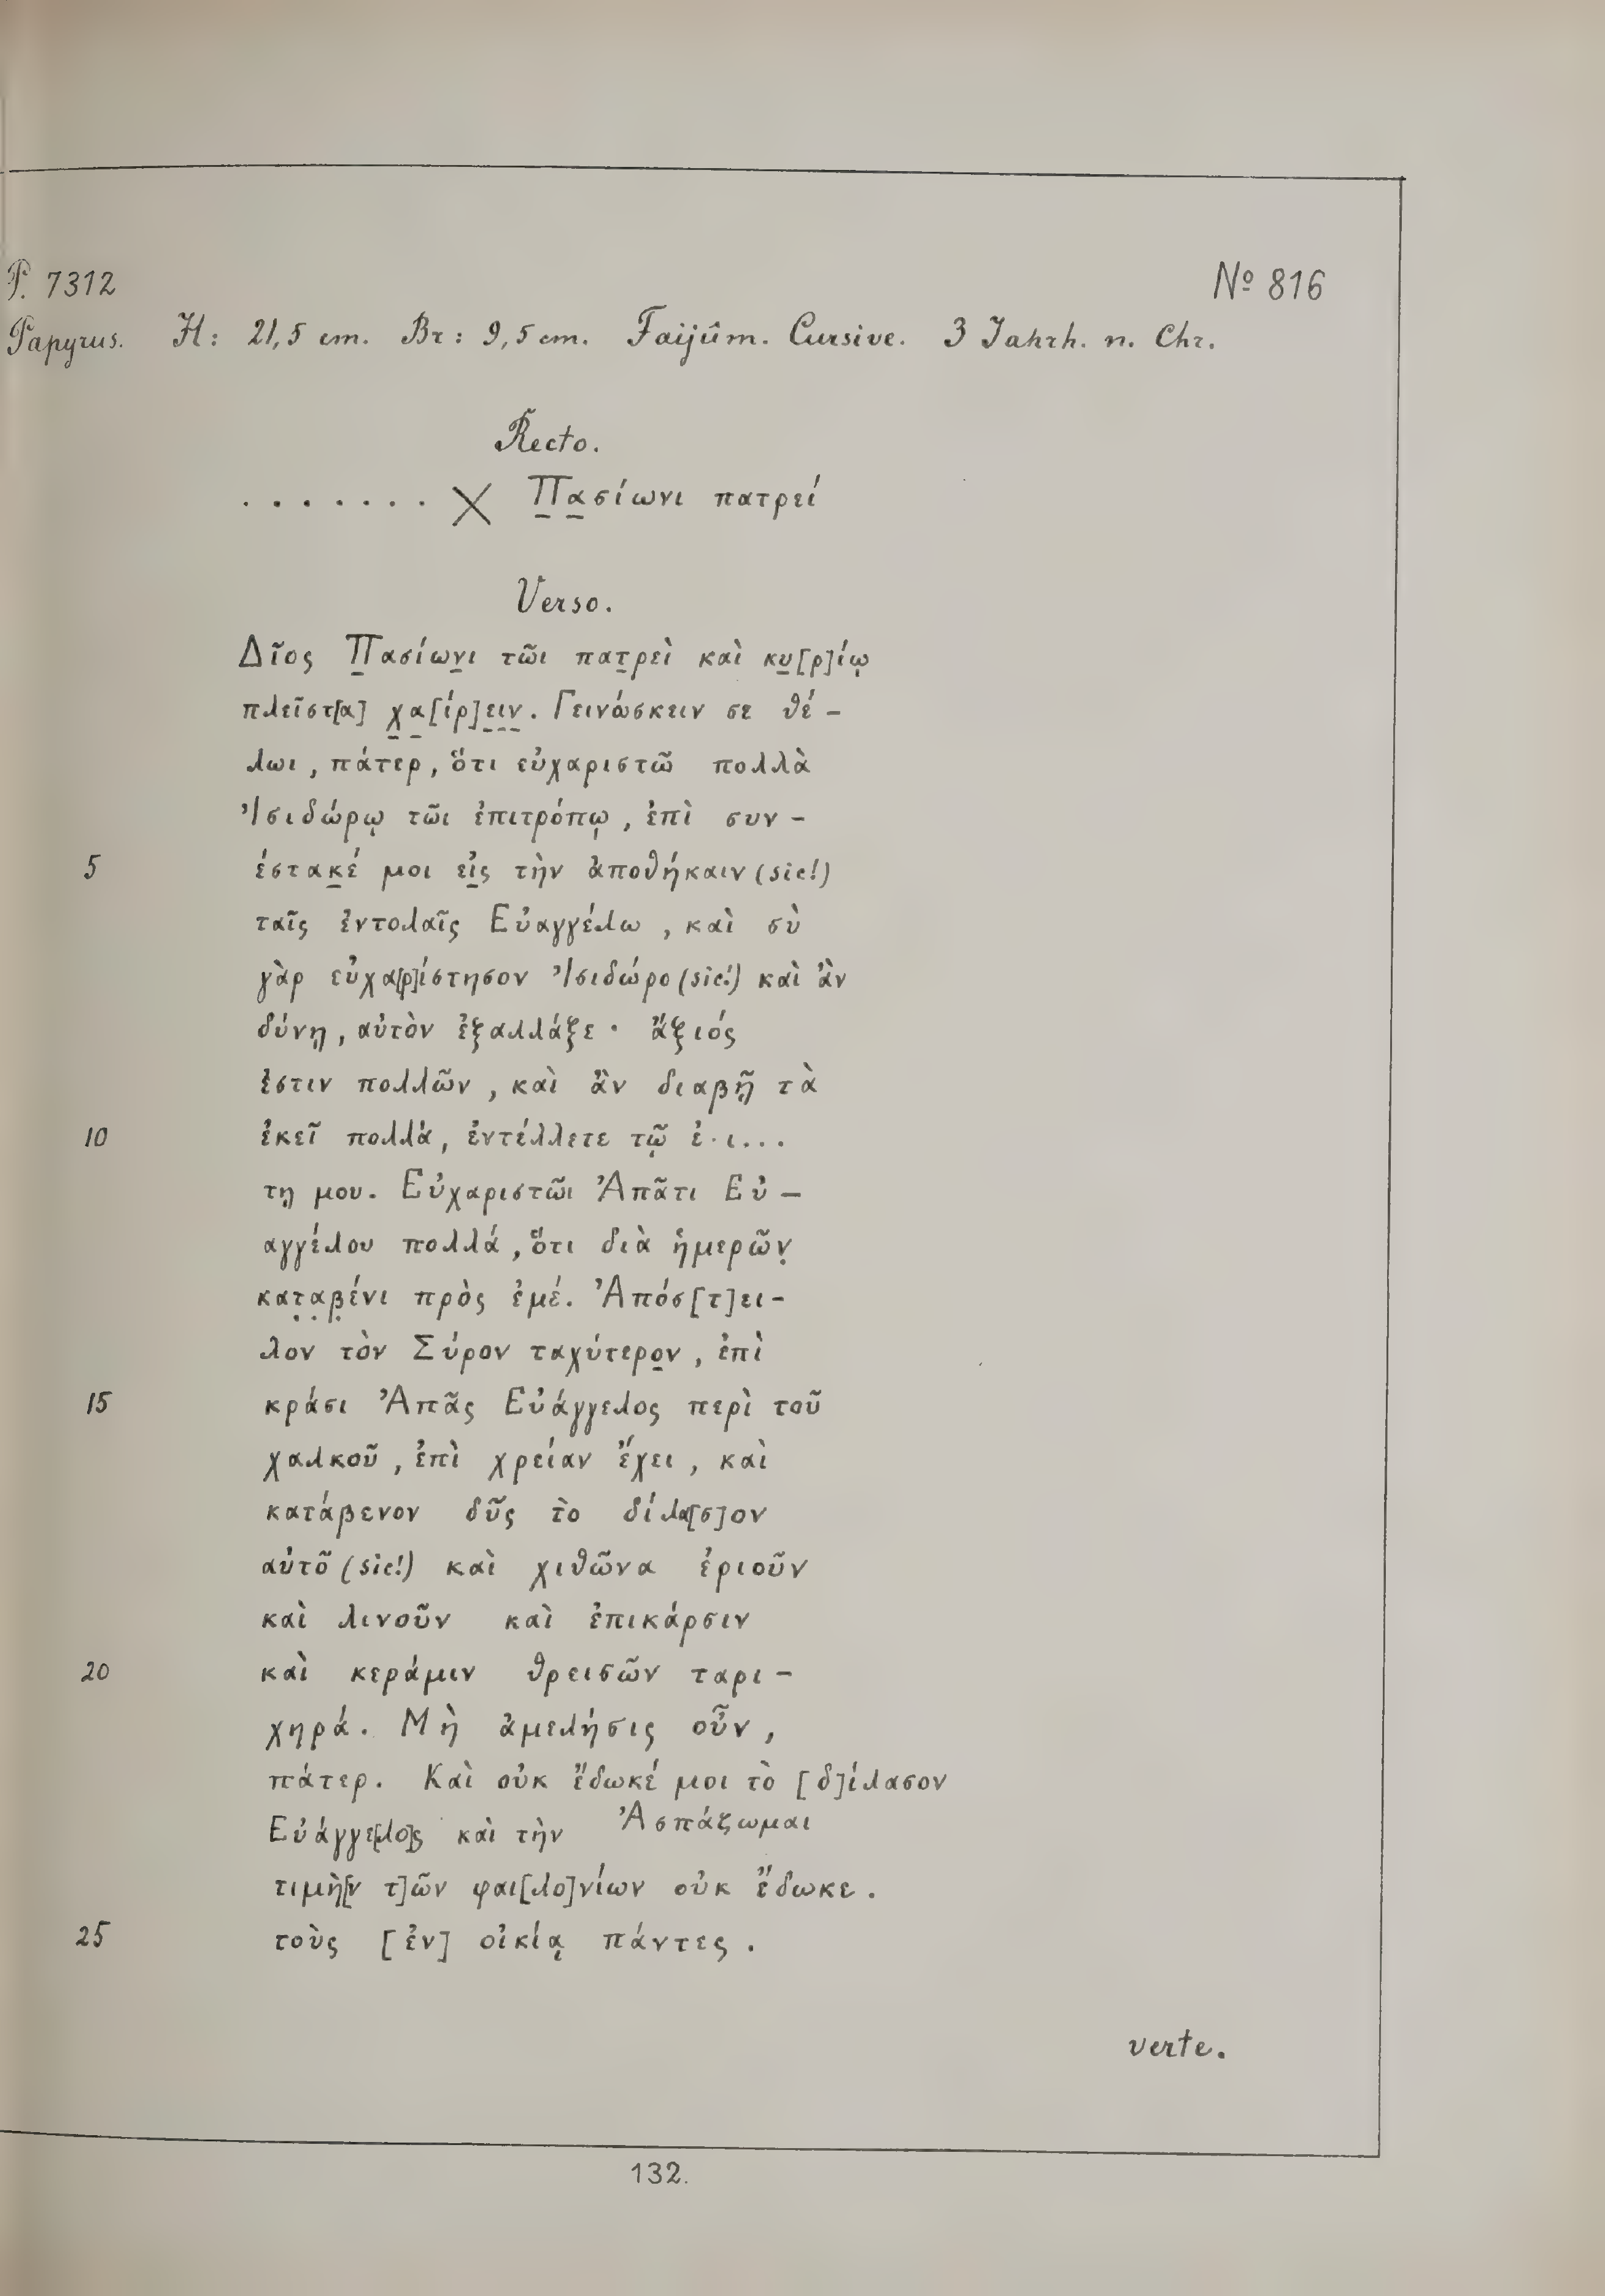 P. 7312
№ 816
Papyrus. H: 21,5 cm. Br: 9,5 cm. Faijûm. Cursive. 3 Jahrh. n. Chr.
Recto.
. . . . . . . X Π̲α̲σίωνι πατρεί
Verso.
Δῖος Π̲ασίων̲ι τῶι πατ̲ρεὶ καὶ κυ̲[ρ]ίῳ
πλεῖστ[α] χ̲α̲[ίρ]ε̲ι̲ν̲. Γεινώσκειν σε θέ-
λωι, πάτερ, ὅτι εὐχαριστῶ πολλὰ
Ἰσιδώρῳ τῶι ἐπιτρόπῳ, ἐπὶ συν-
5 έστακ̲έ μοι εἰ̲ς τὴν ἀποθήκαιν (sic!)
ταῖς ἐντολαῖς Εὐαγγέλω, καὶ σὺ
γὰρ εὐχα[ρ]ίστησον Ἰσιδώρο (sic!) καὶ ἂν
δύνῃ, αὐτὸν ἐξαλλάξε · ἄξιός
ἐστιν πολλῶν, καὶ ἂν διαβῇ τὰ
10 ἐκεῖ πολλά, ἐντέλλετε τῷ ἐ·ι...
τῃ μου. Εὐχαριστῶι Ἀπᾶτι Εὐ-
αγγέλου πολλά, ὅτι διὰ ἡμερῶν̣
κατ̣α̣β̣ένι πρὸς ἐμέ. Ἀπόσ[τ]ει-
λον τὸν Σύρον ταχύτερο̲ν, ἐπὶ
15 κράσι Ἀπᾶς Εὐάγγελος περὶ τοῦ
χαλκοῦ, ἐπὶ χρείαν ἔχει, καὶ
κατάβενον δῦς τὸ δίλα[σ]ον
αὐτο͂ (sic!) καὶ χιθῶνα ἐριοῦν
καὶ λινοῦν καὶ ἐπικάρσιν
20 καὶ κεράμιν θρεισῶν ταρι-
χηρά. Μὴ ἀμελήσις οὖν,
πάτερ. Καὶ οὐκ ἔδωκέ μοι τὸ [δ]ίλασον
Εὐάγγε[λο]ς καὶ τὴν Ἀσπάζωμαι
τιμὴ[ν τ]ῶν φαι[λο]νίων οὐκ ἔδωκε.
25 τοὺς [ἐν] οἰκίᾳ πάντες.
verte.
132.